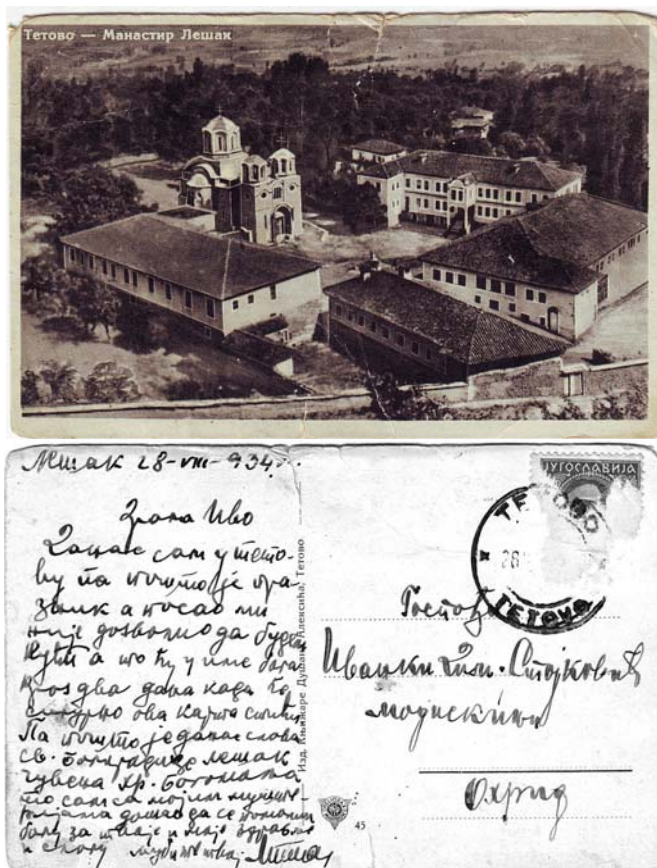 Тетово — Манастир Лешак
Лешак 28-VIII-934
Иво
сам у Тето-
ву па пошто је пра-
зник а посао ми
није дозволио да будем
кући а то ћу у име бога
кроз два дана када ће
ова карта
Па пошто је данас слава
св. Богородице лешак
чувена хр. Богомаћа
то сам са мојим
дошао да се помолим
богу за твоје и моје здравље
и срећу
Изд. Књижаре Душана Алексића, Тетово
ЈУГОСЛАВИЈА
ТЕТОВО
28
ТЕТОVO
Иванки Дим. Стојковић
модискињи
Охрид
45